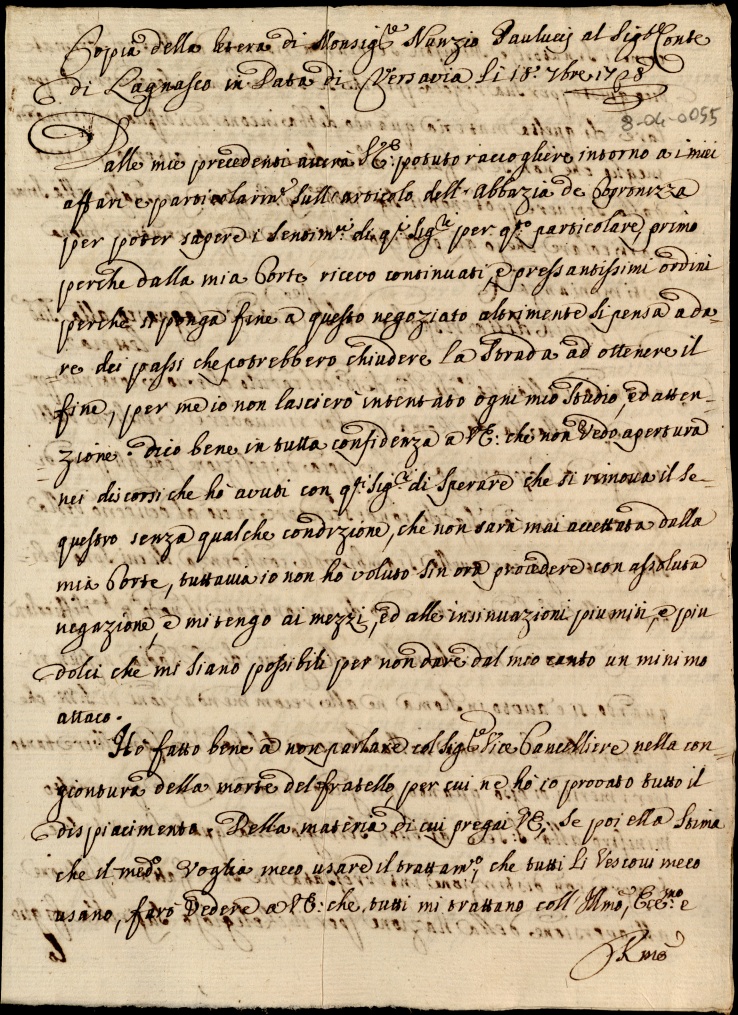 Copia della letera di Monsig.re Nunzio Paulucij al Sig.r Conte
di Lagnasco in Data di Varsavia li 18. 7bre 1728
8-04-0055
Dalle mie precedenti averà V.E. potuto raccogliere intorno a i miei
affari e particolarm.te sull'articolo dell'Abbazia de
per poter sapere i sentim.ti di q.ti Sig.ri per q.to particolare, primo
perche dalla mia Corte ricevo continuati, e pressantissimi ordini
perche si ponga fine a questo negoziato altrimente si pensa a da=
=re dei passi che potrebbero chiudere la Strada ad ottenere il
fine, per me io non lascierò intentato ogni mio Studio, ed atten=
=zione. dico bene in tutta confidenza a V.E: che non Vedo apertura
nei discorsi che hò avuti con q.ti Sig.ri di Sperare che si rimova il Se=
questro senza qualche condizione, che non sarà mai accettata dalla
mia Corte, tuttavia io non hò voluto Sin ora procedere con assoluta
negazione, e mi tengo ai mezzi, ed alle insinuazioni piu miti, e piu
dolci che mi Siano possibili per non dare dal mio canto un minimo
attaco.
Hò fatto bene a non parlare col Sig.r Vice Cancelliere nella con=
giontura della morte del fratello, per cui ne hò io provato tutto il
dispiacimento. Della materia di cui pregai V.E, Se poi ella Stima
che il med.o Voglia meco usare il trattam.to, che tutti Li Vescovi meco
usano, farò Vedere a V.E: che tutti mi trattano coll'Illmo, Ecc.mo e
Rmo